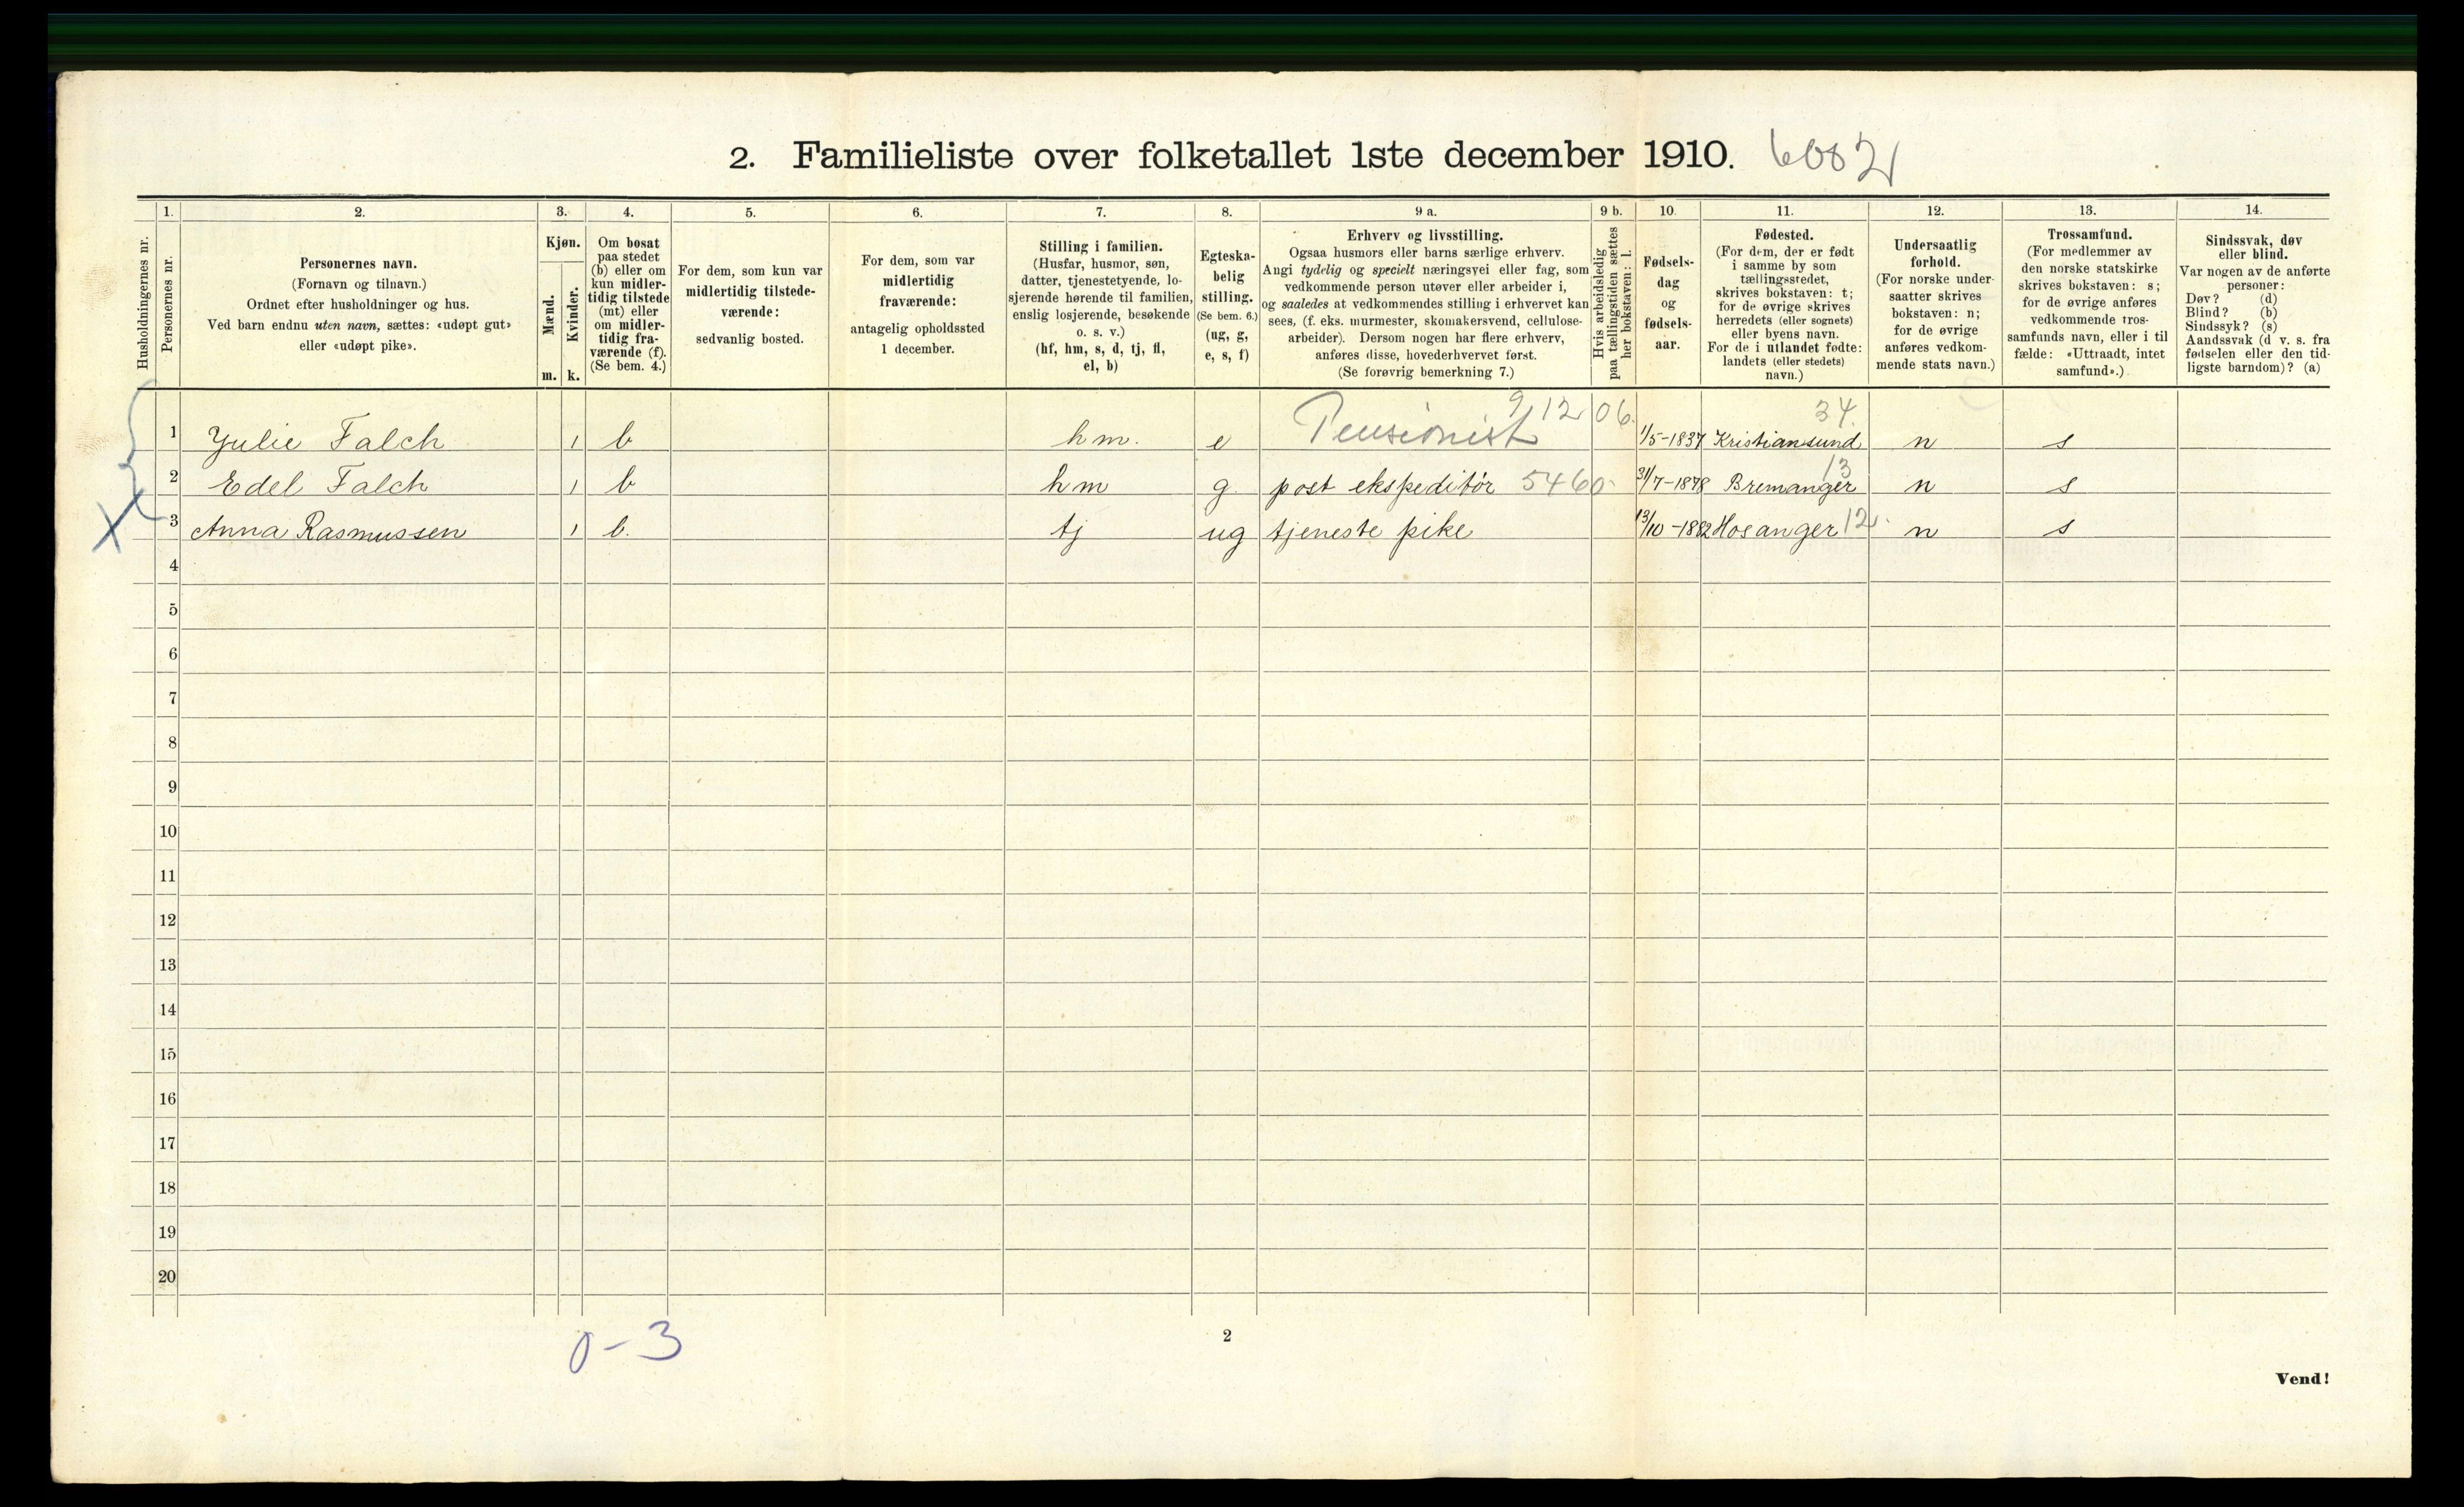 2. Familieliste over folketallet 1ste december 1910.
1. 2. 3. 4. 5. 6. 7. 8. 9 a. 9 b. 10. 11. 12. 13. 14.
Husholdningernes nr.
Personernes nr.
Personernes navn.
(Fornavn og tilnavn.)
Ordnet efter husholdninger og hus.
Ved barn endnu uten navn, sættes: «udøpt gut»
eller «udøpt pike».
Kjøn.
Mænd.
Kvinder.
m. k.
Om bosat
paa stedet
(b) eller om
kun midler-
tidig tilstede
(mt) eller
om midler-
tidig fra-
værende (f).
(Se bem. 4.)
For dem, som kun var
midlertidig tilstede-
værende:
sedvanlig bosted.
For dem, som var
midlertidig
fraværende:
antagelig opholdssted
1 december.
Stilling i familien.
(Husfar, husmor, søn,
datter, tjenestetyende, lo-
sjerende hørende til familien,
enslig losjerende, besøkende
o. s. v.)
(hf, hm, s, d, tj, fl,
el, b)
Egteska-
belig
stilling.
(Se bem. 6.)
(ug, g,
e, s, f)
Erhverv og livsstilling.
Ogsaa husmors eller barns særlige erhverv.
Angi tydelig og specielt næringsvei eller fag, som
vedkommende person utøver eller arbeider i,
og saaledes at vedkommendes stilling i erhvervet kan
sees, (f. eks. murmester, skomakersvend, cellulose-
arbeider). Dersom nogen har flere erhverv,
anføres disse, hovederhvervet først.
(Se forøvrig bemerkning 7.)
Hvis arbeidsledig
paa tællingstiden sættes
her bokstaven: l.
Fødsels-
dag
og
fødsels-
aar.
Fødested.
(For dem, der er født
i samme by som
tællingsstedet,
skrives bokstaven: t;
for de øvrige skrives
herredets (eller sognets)
eller byens navn.
For de i utlandet fødte:
landets (eller stedets)
navn.)
Undersaatlig
forhold.
(For norske under-
saatter skrives
bokstaven: n;
for de øvrige
anføres vedkom-
mende stats navn.)
Trossamfund.
(For medlemmer av
den norske statskirke
skrives bokstaven: s;
for de øvrige anføres
vedkommende tros-
samfunds navn, eller i til
fælde: «Uttraadt, intet
samfund».)
Sindssvak, døv
eller blind.
Var nogen av de anførte
personer:
Døv? (d)
Blind? (b)
Sindssyk? (s)
Aandssvak (d v. s. fra
fødselen eller den tid-
ligste barndom)? (a)
9 12 06. 34.
1 Julie Falch 1 b hm. e Pensionist 1/5-1837 Kristiansund n s
13
2 Edel Falch 1 b hm g. post ekspeditør 5460 31/7-1878 Bremanger n s
3 Anna Rasmussen 1 b. tj ug tjeneste pike 13/10-1882 Hosanger 12. n s
4
5
6
7
8
9
10
11
12
13
14
15
16
17
18
19
20
0-3
2
Vend!